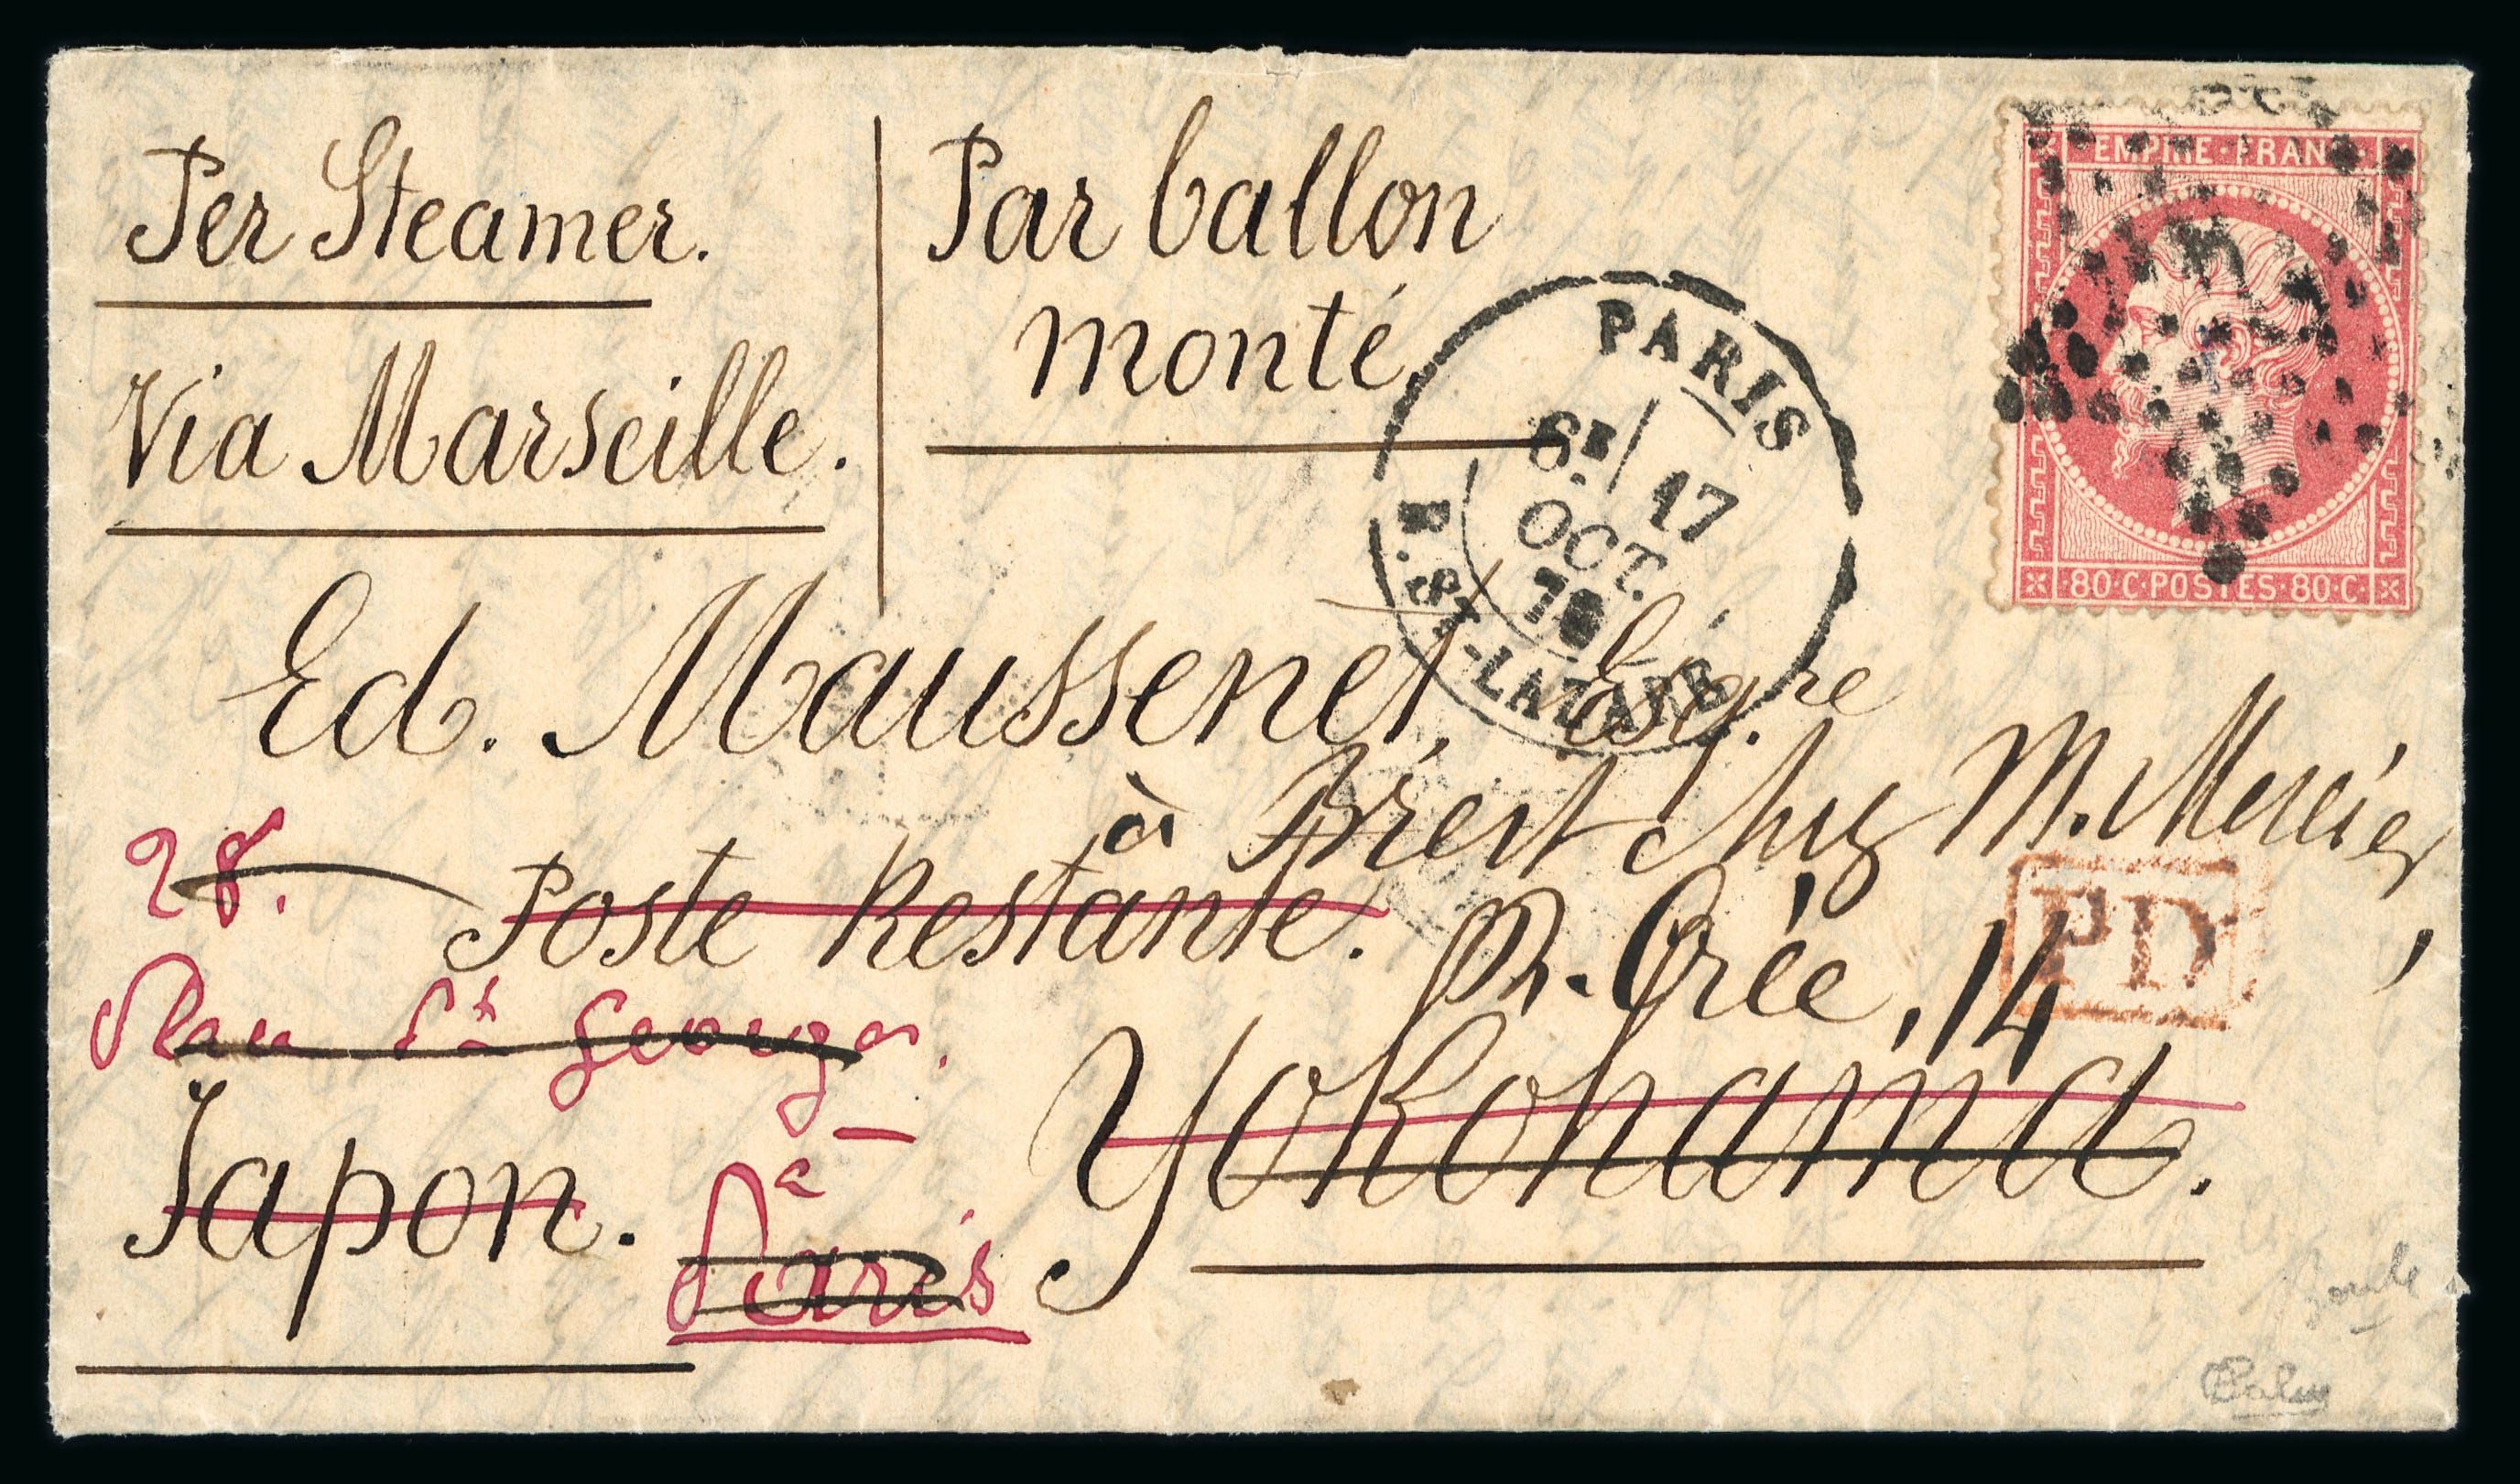 Per Steamer.
Via Marseille.
Par ballon
monté.
PARIS
6E 17
OCT.
70
R. ST-LAZARE
EMPIRE FRANC
80·C·POSTES·80·C
Ed. Maussenet, Esqre
à Brest chez M. Mercier,
R. Crée, 14
28.
Poste Restante.
Rue St Georges.
PD
Japon.
à
Paris
Yokohama.